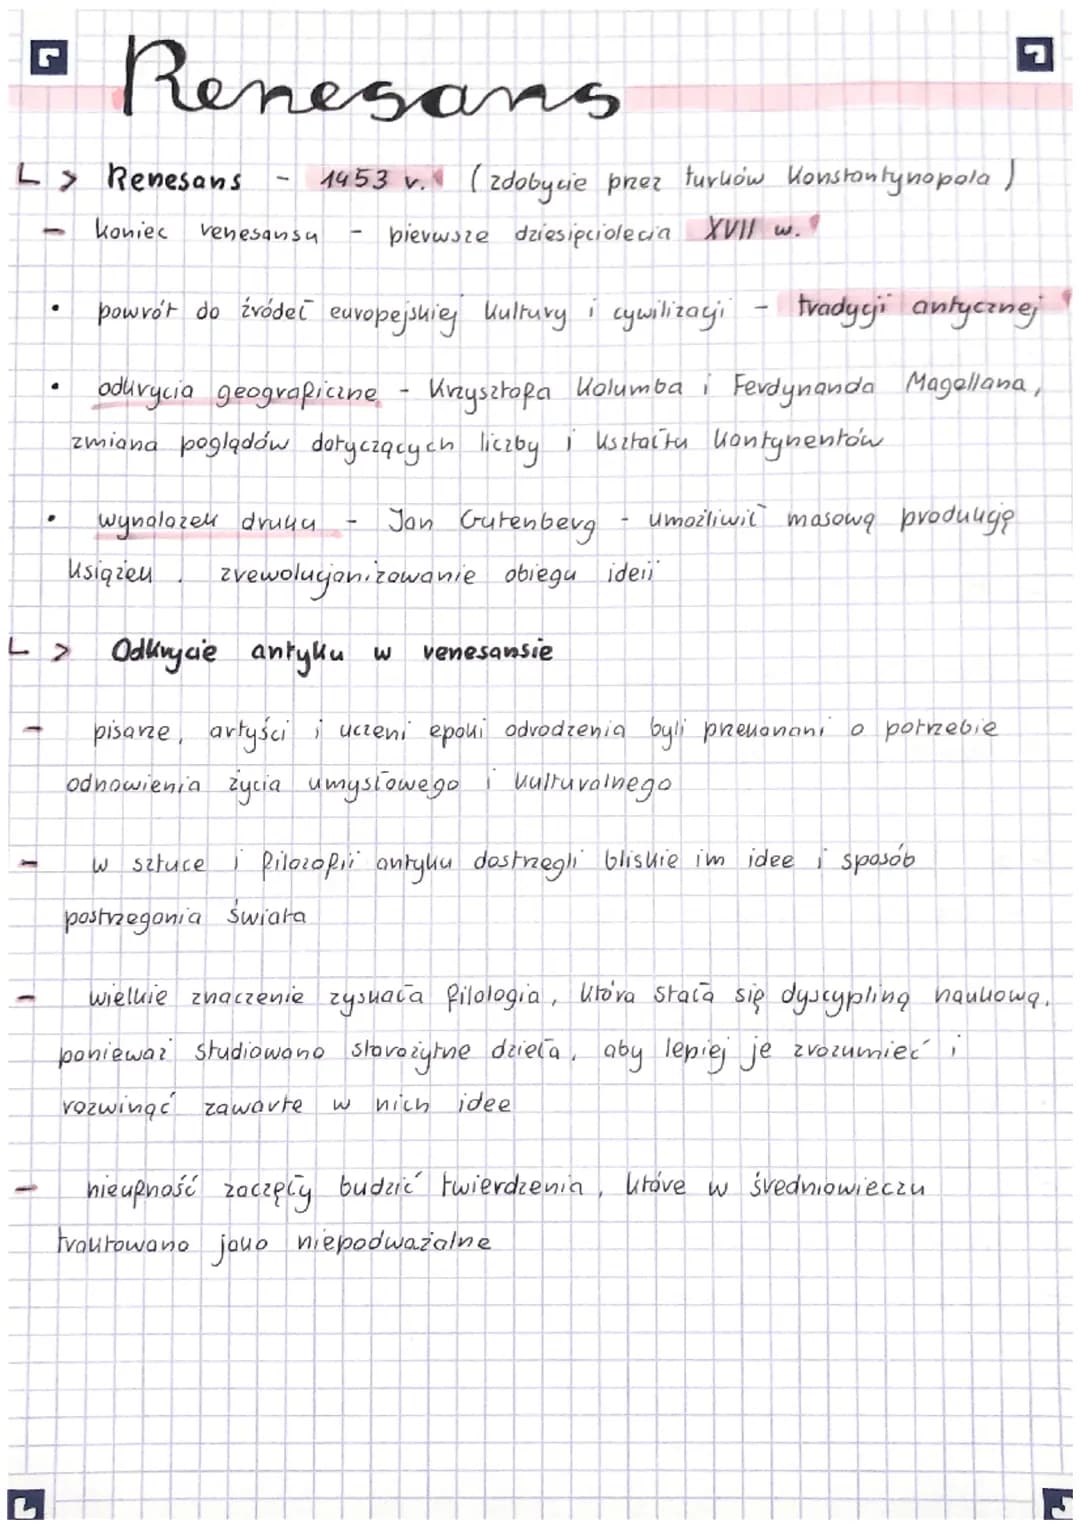 Renesans
Renesans - 1453 r. (zdobycie przez turków Konstantynopola)
- koniec renesansu - pierwsze dziesięciolecia XVII w.
• powrót do źródeł europejskiej kultury i cywilizacji - tradycji antycznej
• odkrycia geograficzne - Krzysztofa Kolumba i Ferdynanda Magellana,
zmiana poglądów dotyczących liczby i kształtu kontynentów
• wynalazek druku - Jan Gutenberg - umożliwił masową produkcję
książek. zrewolucjonizowanie obiegu ideii
Odkrycie antyku w renesansie
- pisarze, artyści i uczeni epoki odrodzenia byli przekonani o potrzebie
odnowienia życia umysłowego i kulturalnego
- w sztuce i filozofii antyku dostrzegli bliskie im idee i sposób
postrzegania świata
- wielkie znaczenie zyskała filologia, która stała się dyscypliną naukową.
ponieważ studiowano starożytne dzieła, aby lepiej je zrozumieć i
rozwinąć zawarte w nich idee
- nieufność zaczęły budzić twierdzenia, które w średniowieczu
traktowano jako niepodważalne